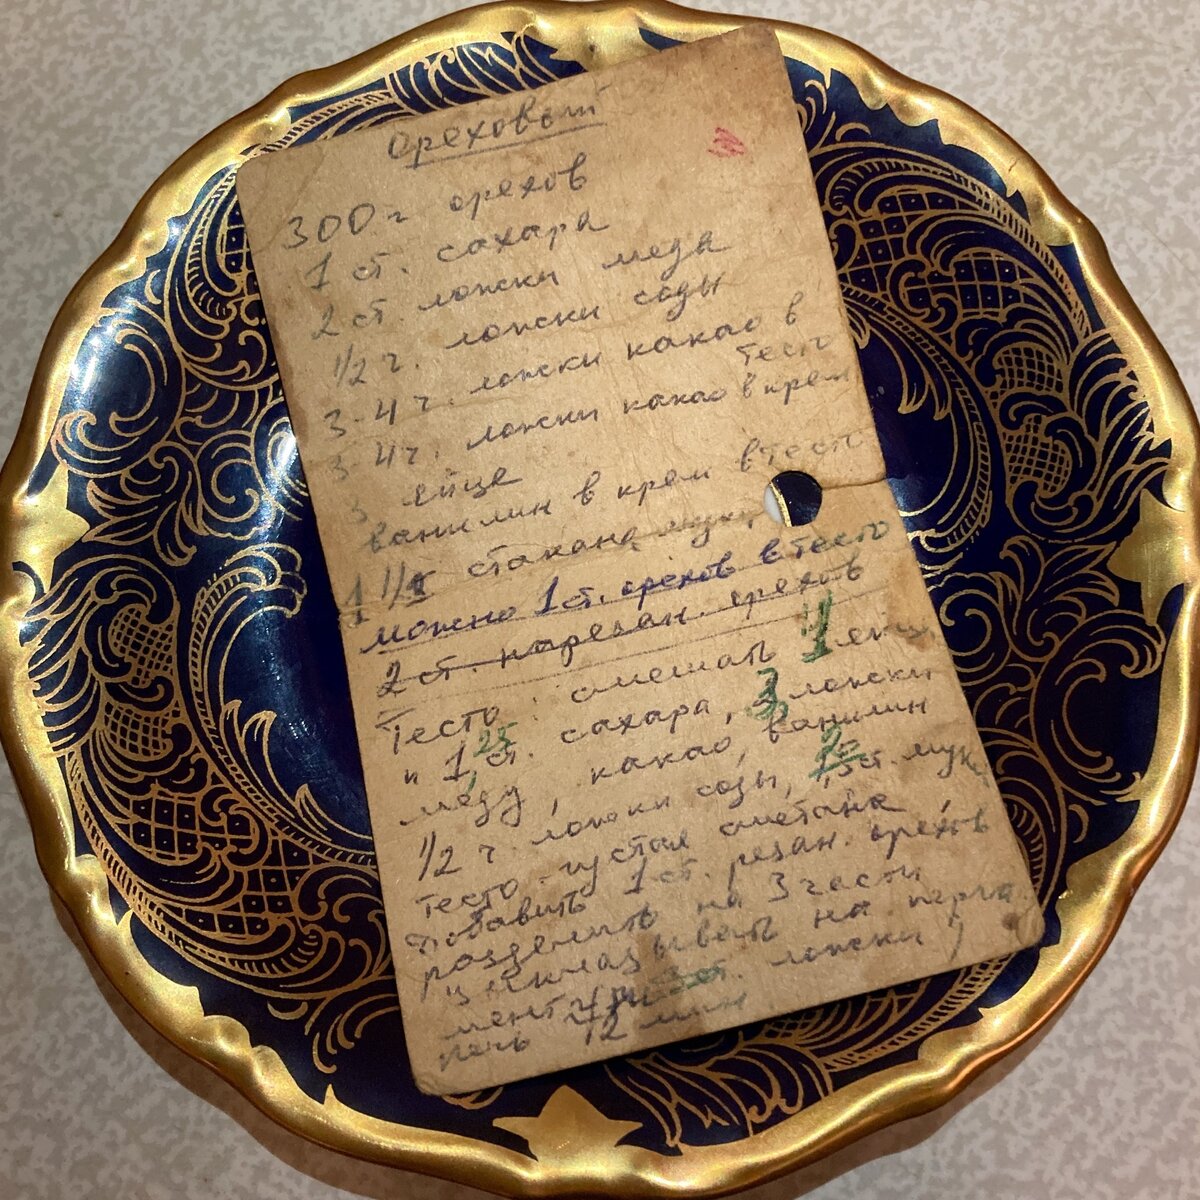 Ореховый
300 г орехов
1 ст. сахара
2 ст ложки меда
1/2 ч. ложки соды
3-4 ч. ложки какао в тесто
3-4 ч. ложки какао в крем
3 яйце
ванилин в крем в тест
1 1/2 стакана муки
можно 1 ст. орехов в тесто
2 ст. нарезан. орехов
Тесто: смешать 4 яйц
и 1,25 ст. сахара, 3 ложки
меду, какао, ванилин
1/2 ч. ложки соды, ст. муки
тесто густая сметана
добавить 1 ст. резан. орехов
разделить на 3 части
и выкладывать на перга
мент ст. ложки
печь 12 мин